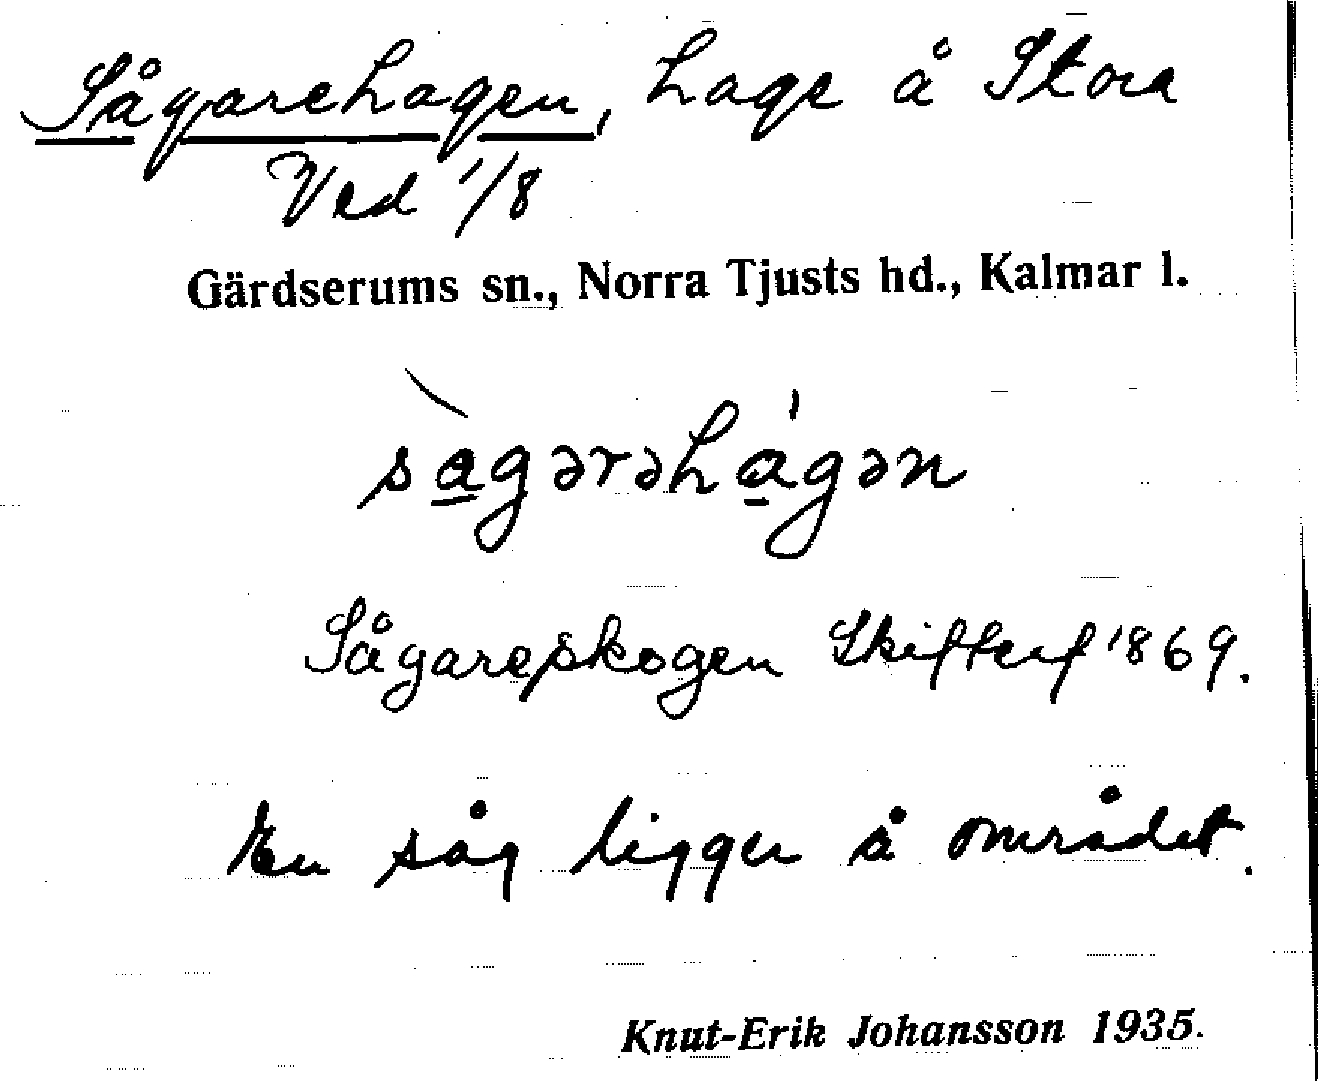 Sågarehagen, hage å Stora
Ved 1/8
Gärdserums sn., Norra Tjusts hd., Kalmar l.
sàgərəhágən
Sågareskogen Skiftesf 1869.
En såg ligger å området.
Knut-Erik Johansson 1935.